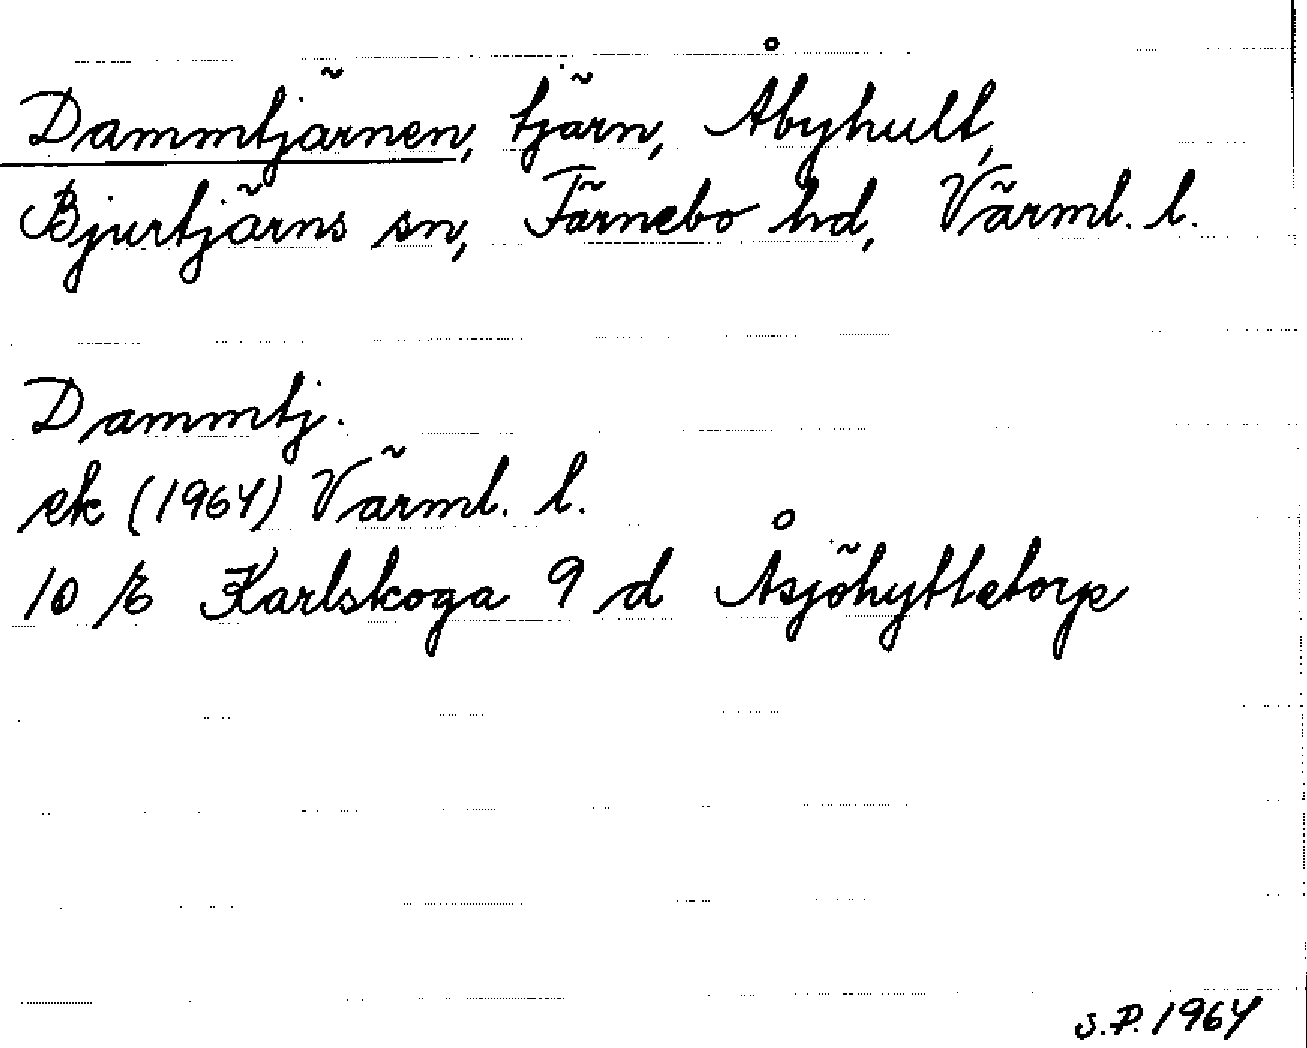 Dammtjärnen, tjärn, Åbyhult,
Bjurtjärns sn, Färnebo hd, Värml. l.
Dammtj.
ek (1964) Värml. l.
10 E Karlskoga 9 d Åsjöhyttetorp
S.P. 1964